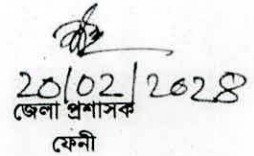 20/02/2028
জেলা প্রশাসক
ফেনী